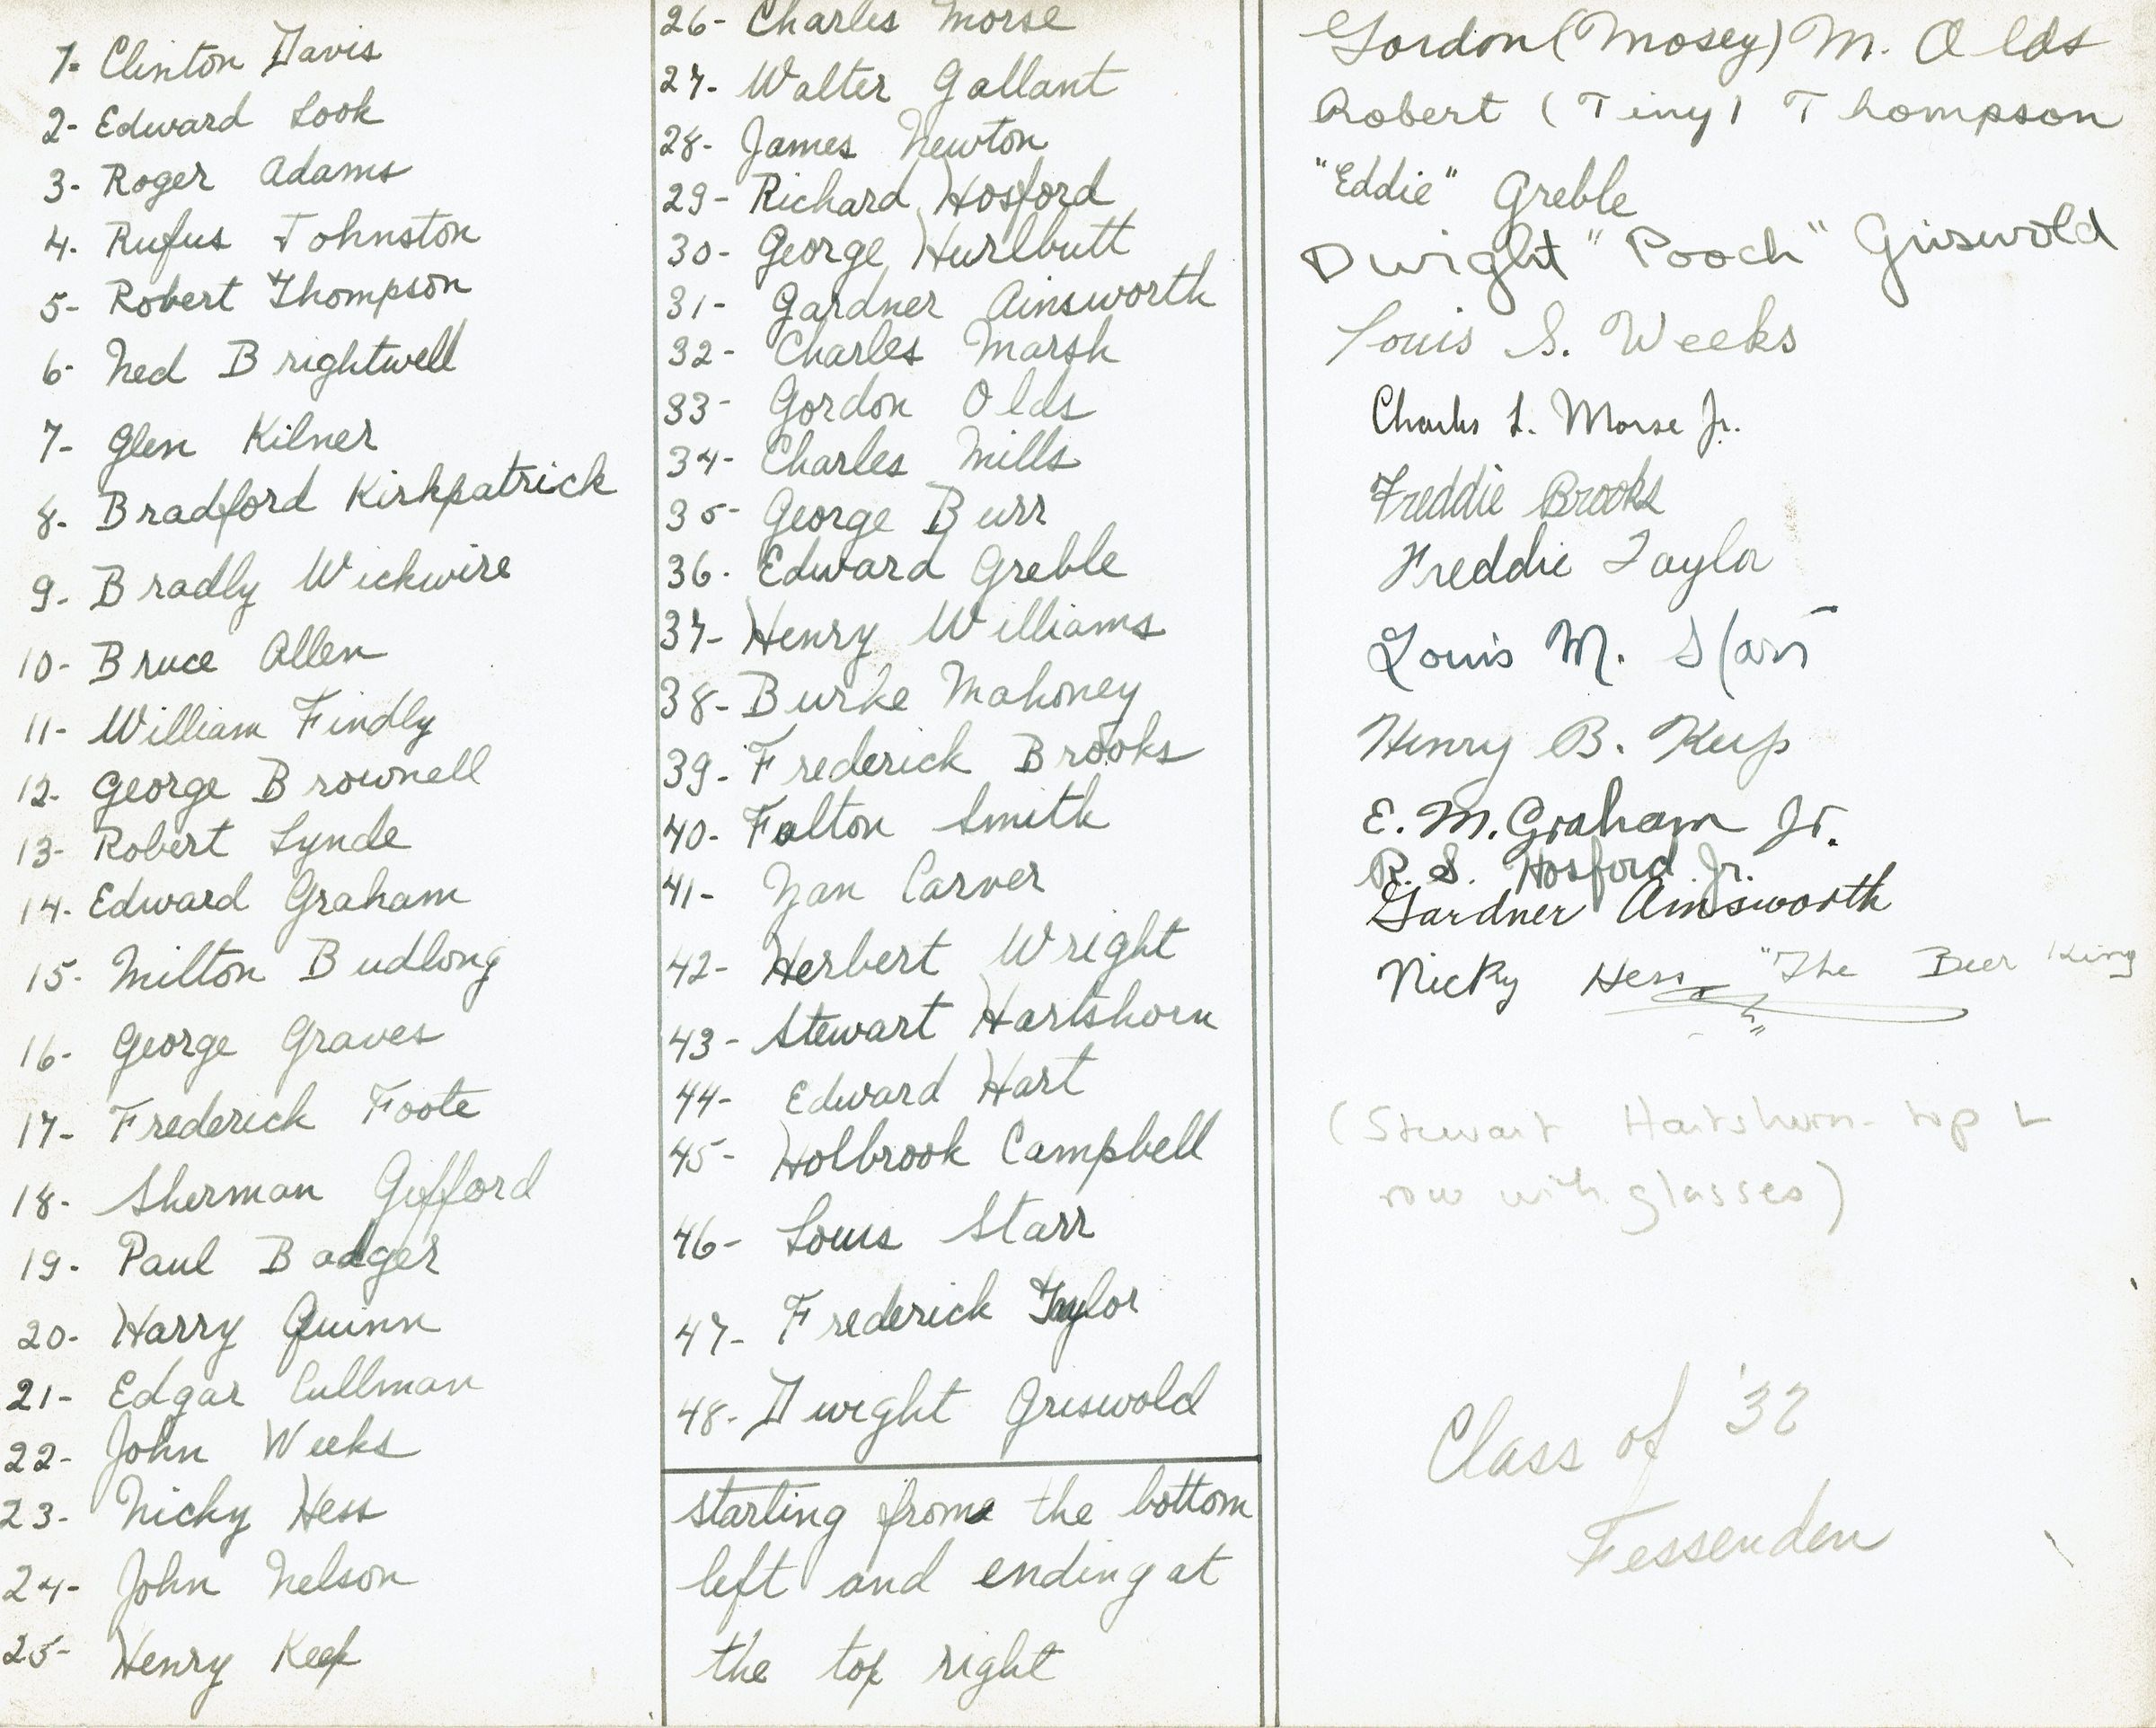 1- Clinton Davis
2- Edward Look
3- Roger Adams
4- Rufus Johnston
5- Robert Thompson
6- Ned Brightwell
7- Glen Kilner
8- Bradford Kirkpatrick
9- Bradly Wickwire
10- Bruce Allen
11- William Findly
12- George Brownell
13- Robert Lynde
14- Edward Graham
15- Milton Budlong
16- George Graves
17- Frederick Foote
18- Sherman Gifford
19- Paul Badger
20- Harry Quinn
21- Edgar Cullman
22- John Weeks
23- Nicky Hess
24- John Nelson
25- Henry Keep
26- Charles Morse
27- Walter Gallant
28- James Newton
29- Richard Hosford
30- George Hurlbutt
31- Gardner Ainsworth
32- Charles Marsh
33- Gordon Olds
34- Charles Mills
35- George Burr
36- Edward Greble
37- Henry Williams
38- Burke Mahoney
39- Frederick Brooks
40- Fulton Smith
41- Carver
42- Herbert Wright
43- Stewart Hartshorn
44- Edward Hart
45- Holbrook Campbell
46- Louis Starr
47- Frederick Taylor
48- Dwight Griswold
starting from the bottom
left and ending at
the top right
Gordon (Mosey) M. Olds
Robert (Tiny) Thompson
"Eddie" Greble
Dwight "Pooch" Griswold
Louis S. Weeks
Charles L. Morse Jr.
Freddie Brooks
Freddie Taylor
Louis M. Starr
Henry B. Keep
E. M. Graham Jr.
R. S. Hosford Jr.
Gardner Ainsworth
Nicky Hess "The Beer King"
(Stewart Hartshorn- top L
row with glasses)
Class of '32
Fessenden